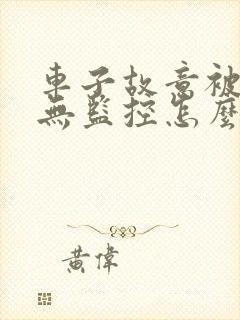 車子故意被
無監控怎麼
黃偉